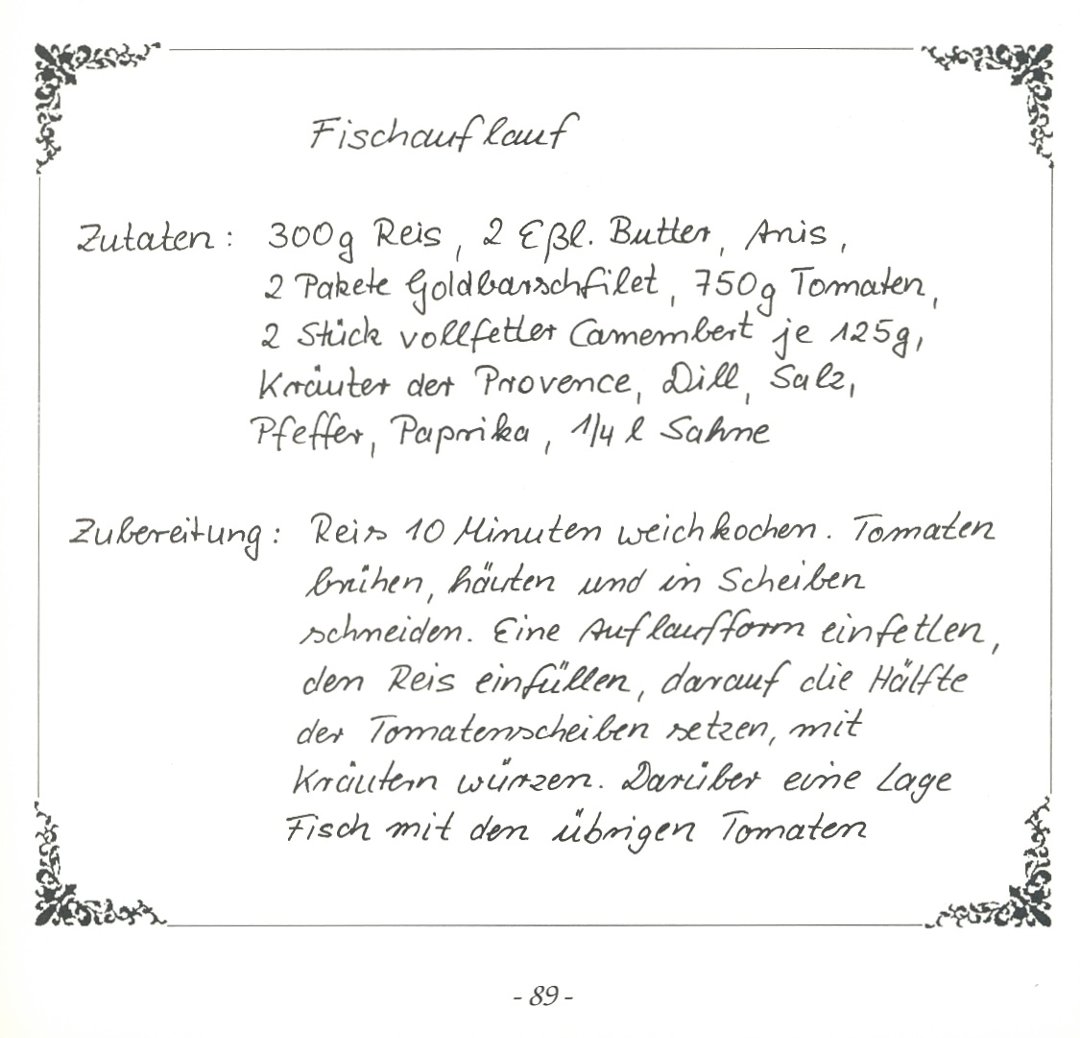 Fischauflauf
Zutaten: 300g Reis, 2 Eßl. Butter, Anis,
2 Pakete Goldbarschfilet, 750g Tomaten,
2 Stück vollfetter Camembert je 125g,
Kräuter der Provence, Dill, Salz,
Pfeffer, Paprika, 1/4 l Sahne
Zubereitung: Reis 10 Minuten weichkochen. Tomaten
brühen, häuten und in Scheiben
schneiden. Eine Auflaufform einfetten,
den Reis einfüllen, darauf die Hälfte
der Tomatenscheiben setzen, mit
Kräutern würzen. Darüber eine Lage
Fisch mit den übrigen Tomaten
- 89 -